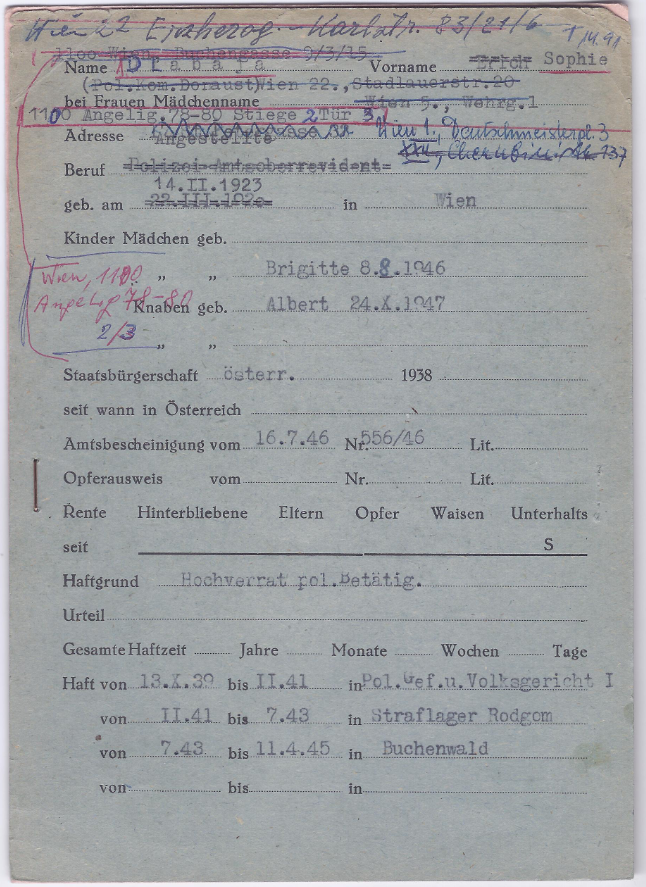 Wien 22 Erzherzog-Karlstr. 83/21/6
1100 Wien, Buchengasse 9/3/15
Name Drabaja Vorname Erich Sophie
(Pol.Kom.Doraust)Wien 22.,Stadlauerstr.20
bei Frauen Mädchenname Wien 5., Wehrg.1
1100 Angelig.78-80 Stiege 2 Tür 3
Adresse Wien 1., Deutschmeisterpl. 3
Angestellte
Beruf Polizei-Amtsoberrevident
14.II.1923
geb. am 22.III.1920 in Wien
Kinder Mädchen geb.
„ „ Brigitte 8.8.1946
Wien, 1100
Angelig 78-80
2/3
Knaben geb. Albert 24.X.1947
„ „
Staatsbürgerschaft österr. 1938
seit wann in Österreich
Amtsbescheinigung vom 16.7.46 Nr. 556/46 Lit.
Opferausweis vom Nr. Lit.
Rente Hinterbliebene Eltern Opfer Waisen Unterhalts
seit S
Haftgrund Hochverrat pol.Betätig.
Urteil
Gesamte Haftzeit Jahre Monate Wochen Tage
Haft von 13.X.39 bis II.41 in Pol.Gef.u.Volksgericht I
von II.41 bis 7.43 in Straflager Rodgom
von 7.43 bis 11.4.45 in Buchenwald
von bis in